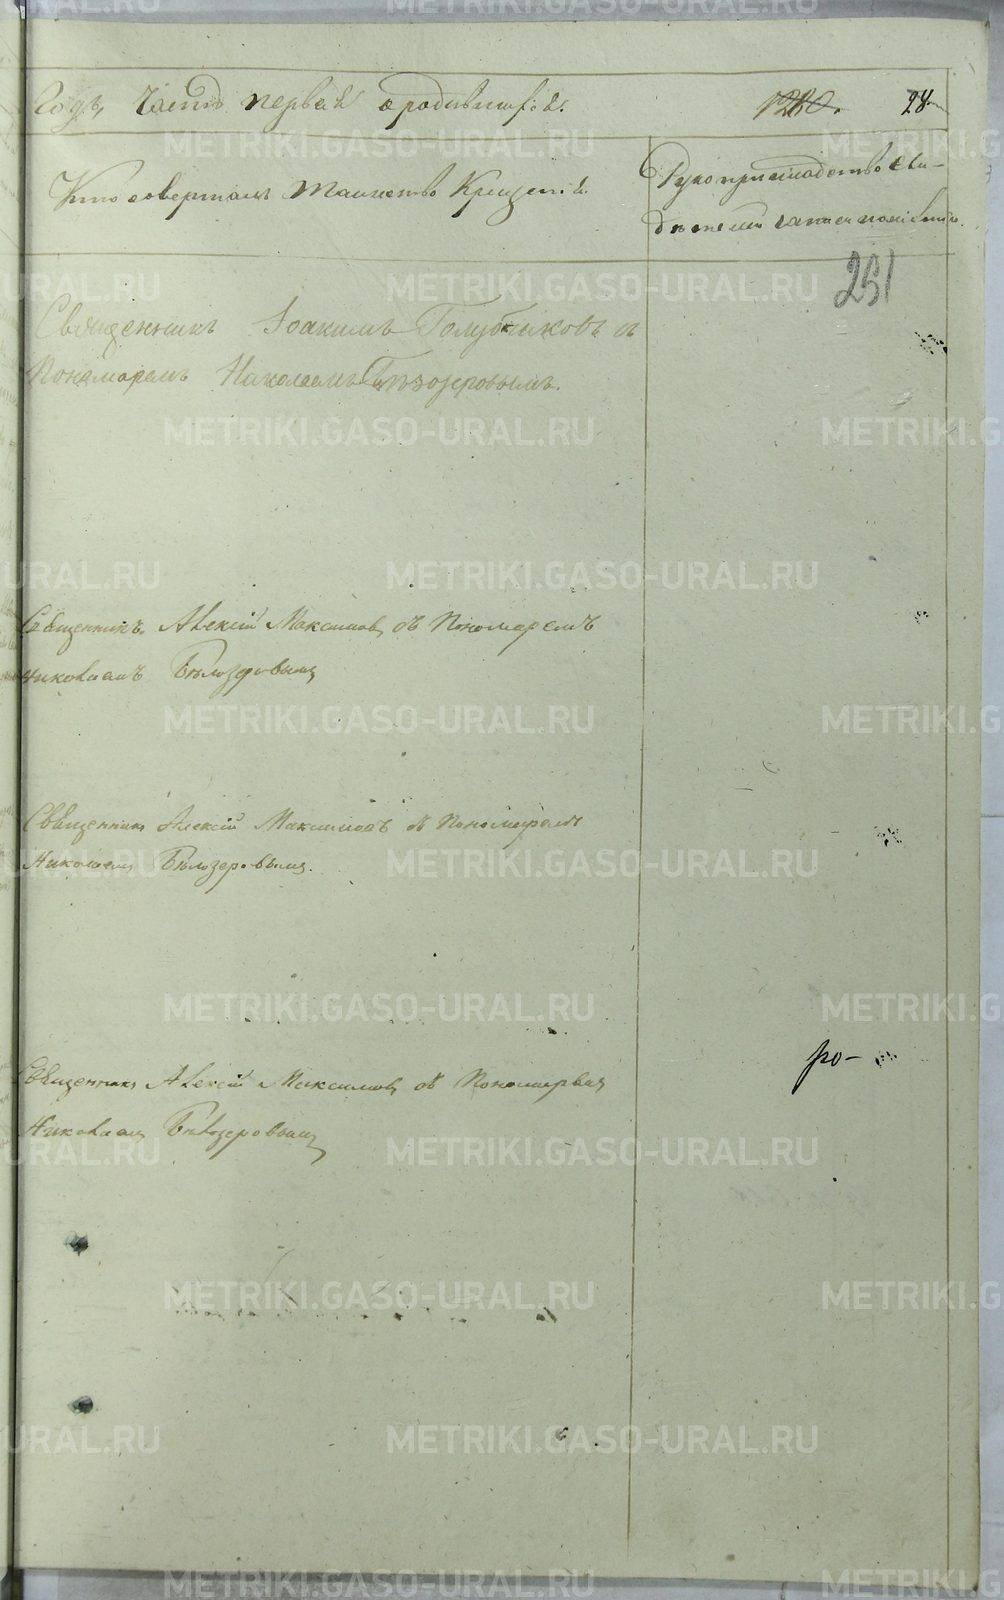 Годъ, Часть первая о родившихся.
1210. 28.
Кто совершалъ таинство Крещенія.
Рукоприкладство сви-
дѣтелей записи
251
Священникъ Іоакимъ Голубчиковъ съ
Пономаремъ Николаемъ Бѣлозеровымъ.
Священникъ Алексій Максимовъ съ Пономаремъ
Николаемъ Бѣлозеровымъ
Священникъ Алексій Максимовъ съ Пономаремъ
Николаемъ Бѣлозеровымъ.
ро-
Священникъ Алексій Максимовъ съ Пономаремъ
Николаемъ Бѣлозеровымъ
METRIKI.GASO-URAL.RU